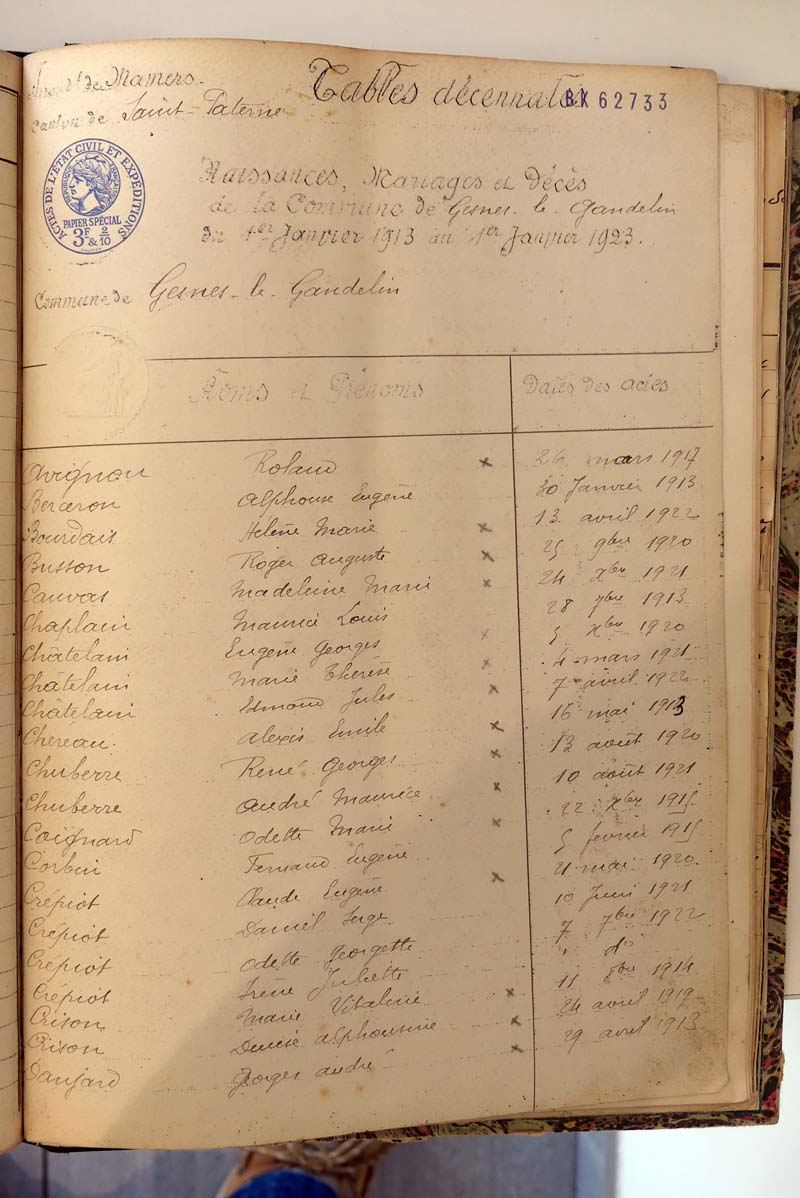 Arrond.t de Mamers.
Canton de Saint-Paterne
Tables décennales
BX 62733
ACTES DE L'ETAT CIVIL ET EXPEDITIONS
PAPIER SPÉCIAL
3F 2/10
& 10
Naissances, Mariages et Décès
de la Commune de Gesnes-le-Gandelin
du 1er Janvier 1913 au 1er Janvier 1923.
Commune de Gesnes-le-Gandelin
Noms et Prénoms Dates des actes
Avignon Roland x 26 mars 1917
Berceron Alphonse Eugène 30 Janvier 1913
Bourdais Hélène Marie x 13 avril 1922
Busson Roger Auguste x 25 9bre 1920
Cauvas Madeleine Marie x 24 Xbre 1921
Chaplain Maurice Louis 28 7bre 1913
Châtelain Eugène Georges x 5 Xbre 1920
Châtelain Marie Thérèse x 4 mars 1921
Châtelain Edmond Jules x 7 avril 1922
Chereau Alexis Emile x 16 mai 1913
Chuberre René Georges x 13 août 1920
Chuberre André Maurice x 10 août 1921
Coignard Odette Marie x 22 Xbre 1915
Corbin Fernand Eugène 5 février 1915
Crépiot Claude Eugène x 21 mai 1920
Crépiot Daniel Serge 10 Juin 1921
Crépiot Odette Georgette 7 7bre 1922
Crépiot Irène Juliette " do
Crison Marie Vitaline x 11 8bre 1914
Crison Denise Alphonsine x 24 avril 1919
Daujard Georges André x 29 avril 1913